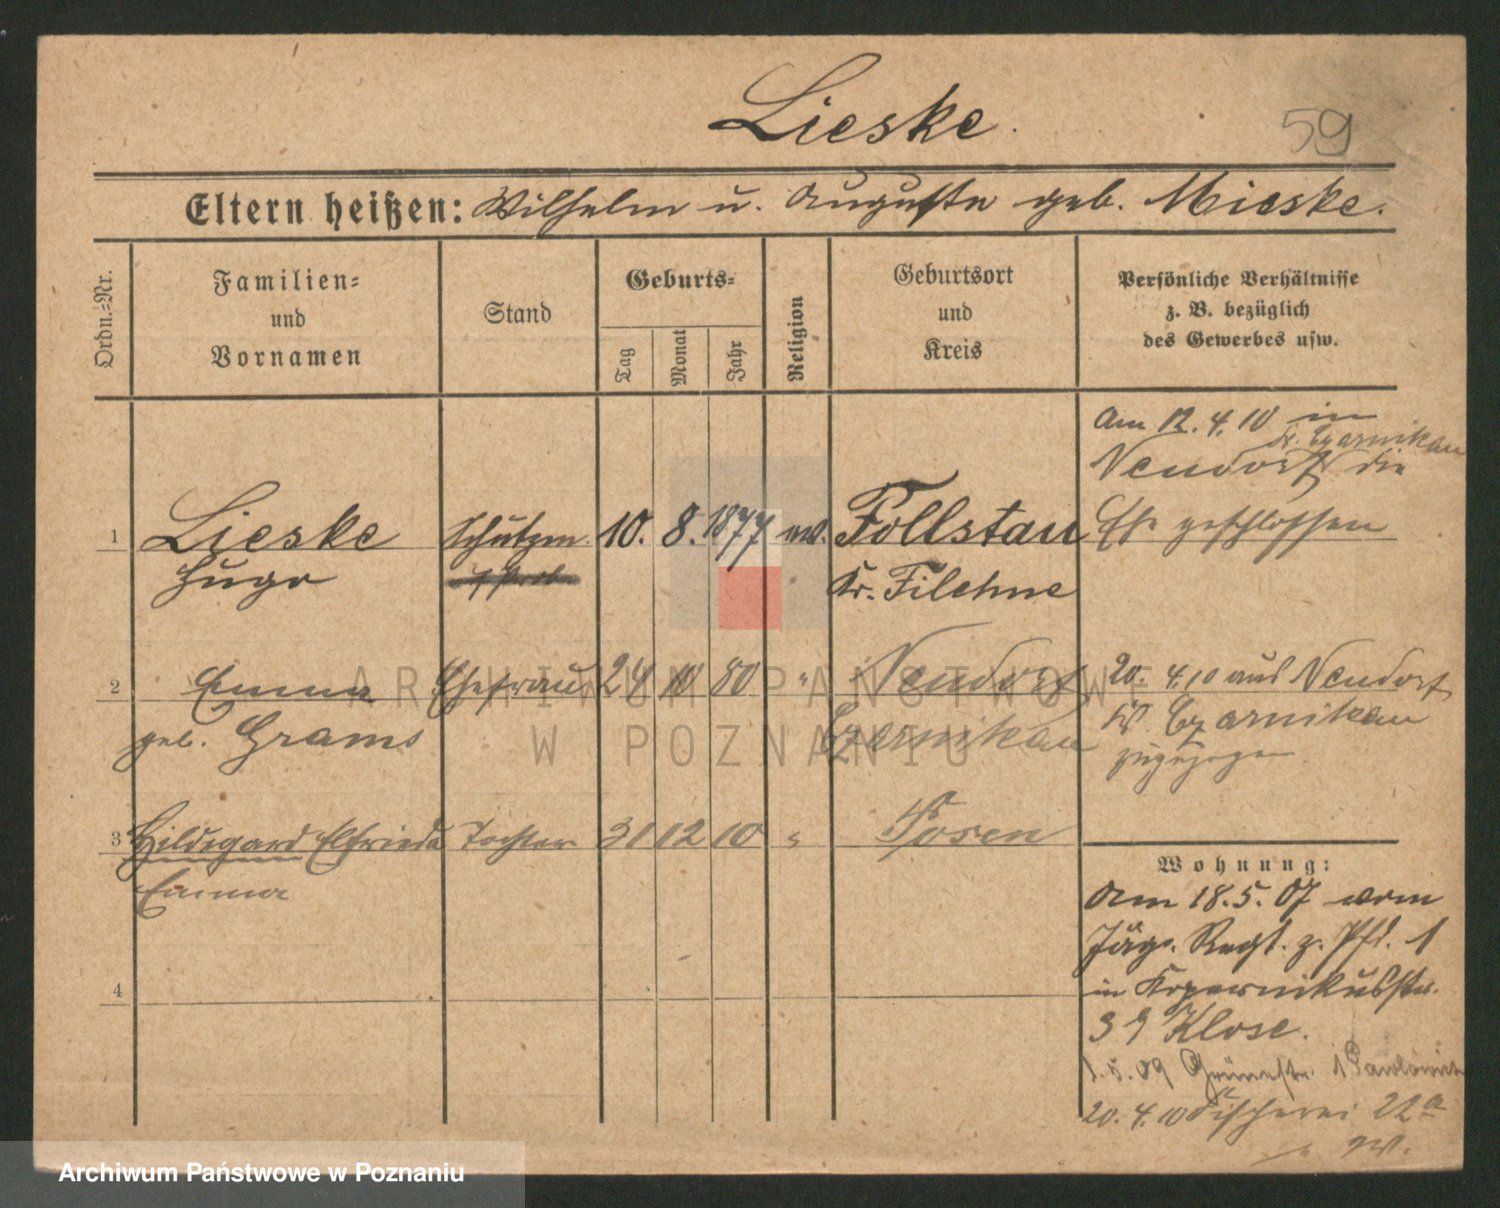 Lieske.
59
Eltern heißen: Wilhelm u. Auguste geb. Mieske.
Ordn.=Nr.
Familien=
und
Vornamen
Stand
Geburts=
Tag
Monat
Jahr
Religion
Geburtsort
und
Kreis
Persönliche Verhältnisse
z. B. bezüglich
des Gewerbes usw.
1
Lieske
Hugo
Schutzm.
10. 8. 1877
ev.
Follstau
Kr. Filehne
Am 12. 4. 10 in
Kr. Czarnikau
Neudorf die
Ehe geschlossen
2
Emma
geb. Grams
Ehefrau
24 10 80
"
Neudorf
Czarnikau
20. 4. 10 aus Neudorf
Kr. Czarnikau
zugezogen
3
Hildegard Elfriede
Emma
Tochter
31 12 10
"
Posen
4
Wohnung:
Am 18. 5. 07 vom
Jäg. Regt. z. Pfd. 1
in Kopernikusstr.
Klose.
1. 5. 09 Grünestr. 1
20. 4. 10 Fischerei 22a
ARCHIWUM PAŃSTWOWE
W POZNANIU
Archiwum Państwowe w Poznaniu